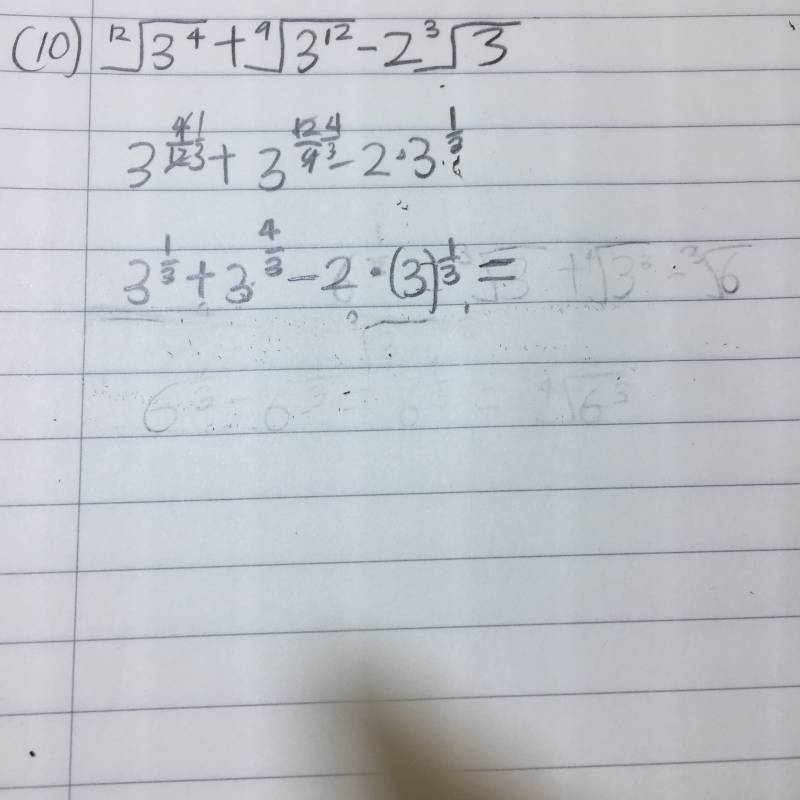 (10) ¹²√3⁴ + ⁹√3¹² - 2 ³√3
3^(4/12 1/3) + 3^(12/9 4/3) - 2 · 3^(1/3)
3^(1/3) + 3^(4/3) - 2 · (3)^(1/3) =